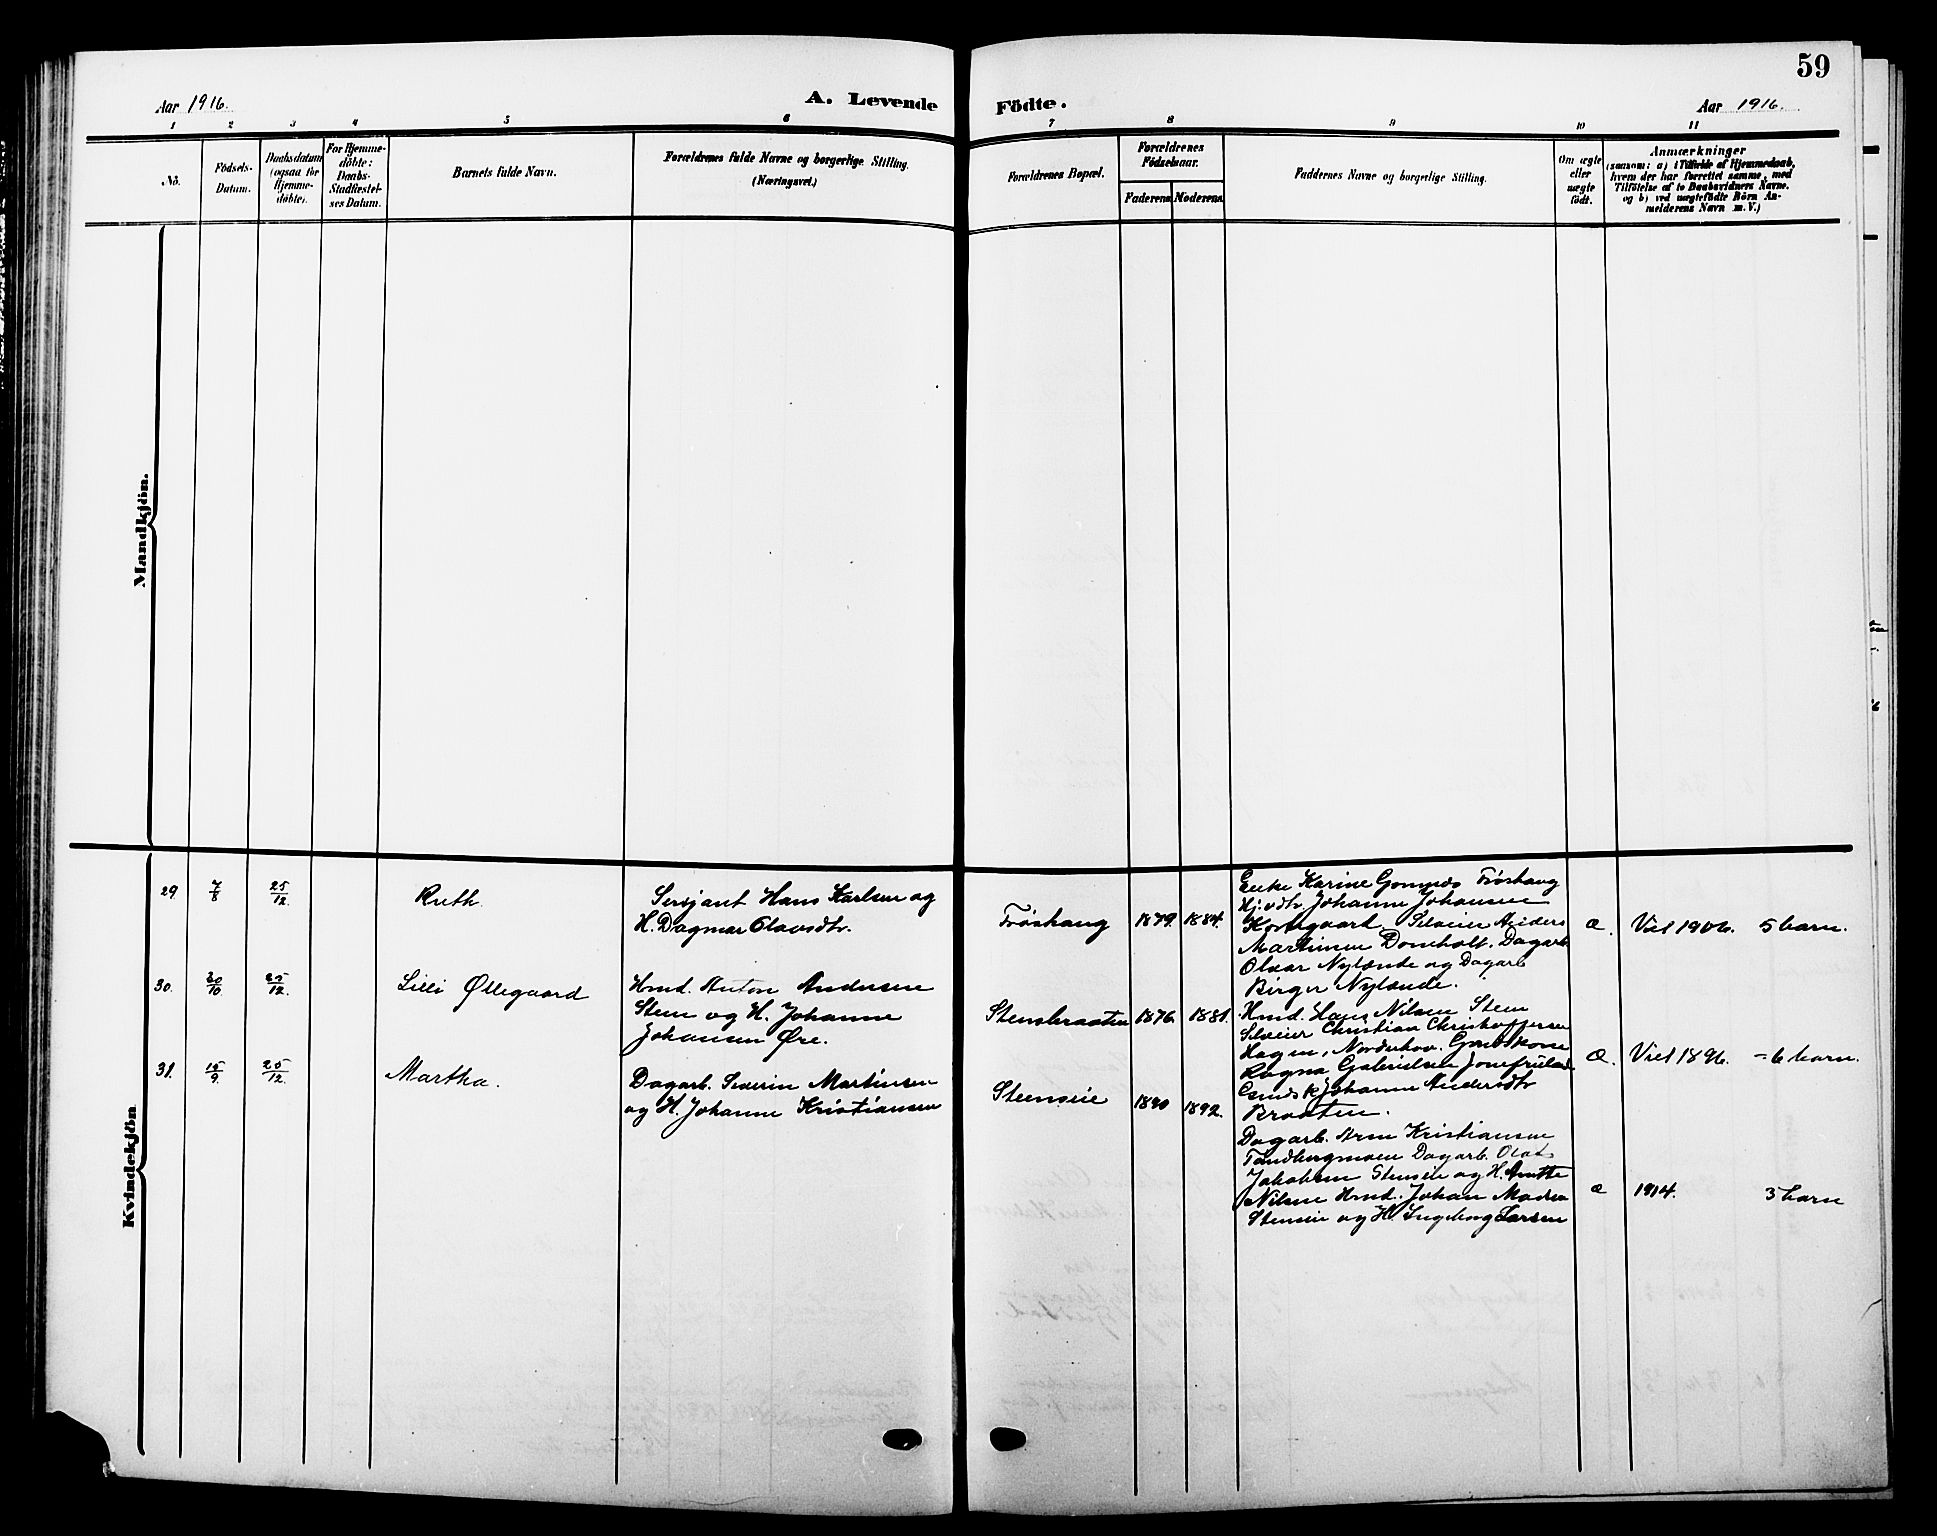 59
Aar 1916.
A. Levende
Födte.
Aar 1916.
1 2 3 4 5 6 7 8 9 10 11
No.
Födsels-
Datum.
Daabsdatum
(ogsaa for
Hjemme-
döbte).
For Hjemme-
döbte:
Daabs-
Stadfæstel-
ses Datum.
Barnets fulde Navn.
Forældrenes fulde Navne og borgerlige Stilling.
(Næringsvei.)
Forældrenes Bopæl.
Forældrenes
Födselsaar.
Faderens Moderens
Faddernes Navne og borgerlige Stilling.
Om ægte
eller
uægte
født.
Anmærkninger
(saasom: a) i Tilfælde af Hjemmedaab,
hvem der har forrettet samme, med
Tilföielse af to Daabsvidners Navne,
og b) ved uægtefödte Börn An-
melderens Navn m. V.)
Mandkjön.
Kvindekjön
29 7/8 25/12. Ruth.
Sersjant Hans Karlsen og
H. Dagmar Olavsdtr.
Frøshaug 1879. 1884.
Enke Karine Frøshaug
Hj. v. dtr. Johanne Johansen
Korsgaard.
Martinsen Domholt. Dagarb.
Olvar Nylænde og Dagarb
Birger Nylænde.
æ. Viet 1906. 5 barn.
30. 20/10 25/12. Lilli Øllegaard
Hmd. Anton Andersen
Steen og H. Johanne
Johansen Øre.
Stensbraaten 1876 1881.
Hmd. Hans Nilsen Steen
Christian Christoffersen
Hagen, Norderhov.
Ragna Gabrielsen
Johanne Andersdtr
Braaten.
æ. Viet 1896. - 6 barn.
31. 15/9. 25/12. Martha.
Dagarb. Severin Martinsen
og H. Johanne Kristiansen
Steenseie 1890 1892.
Dagarb. Arne Kristiansen
Tandbergmoen Dagarb. Olaf
Jakobsen Stenseie og H. Anette
Nilsen Hmd. Johan Madsen
Stenseie og H. Ingeborg Larsen
æ 1914. 3 barn